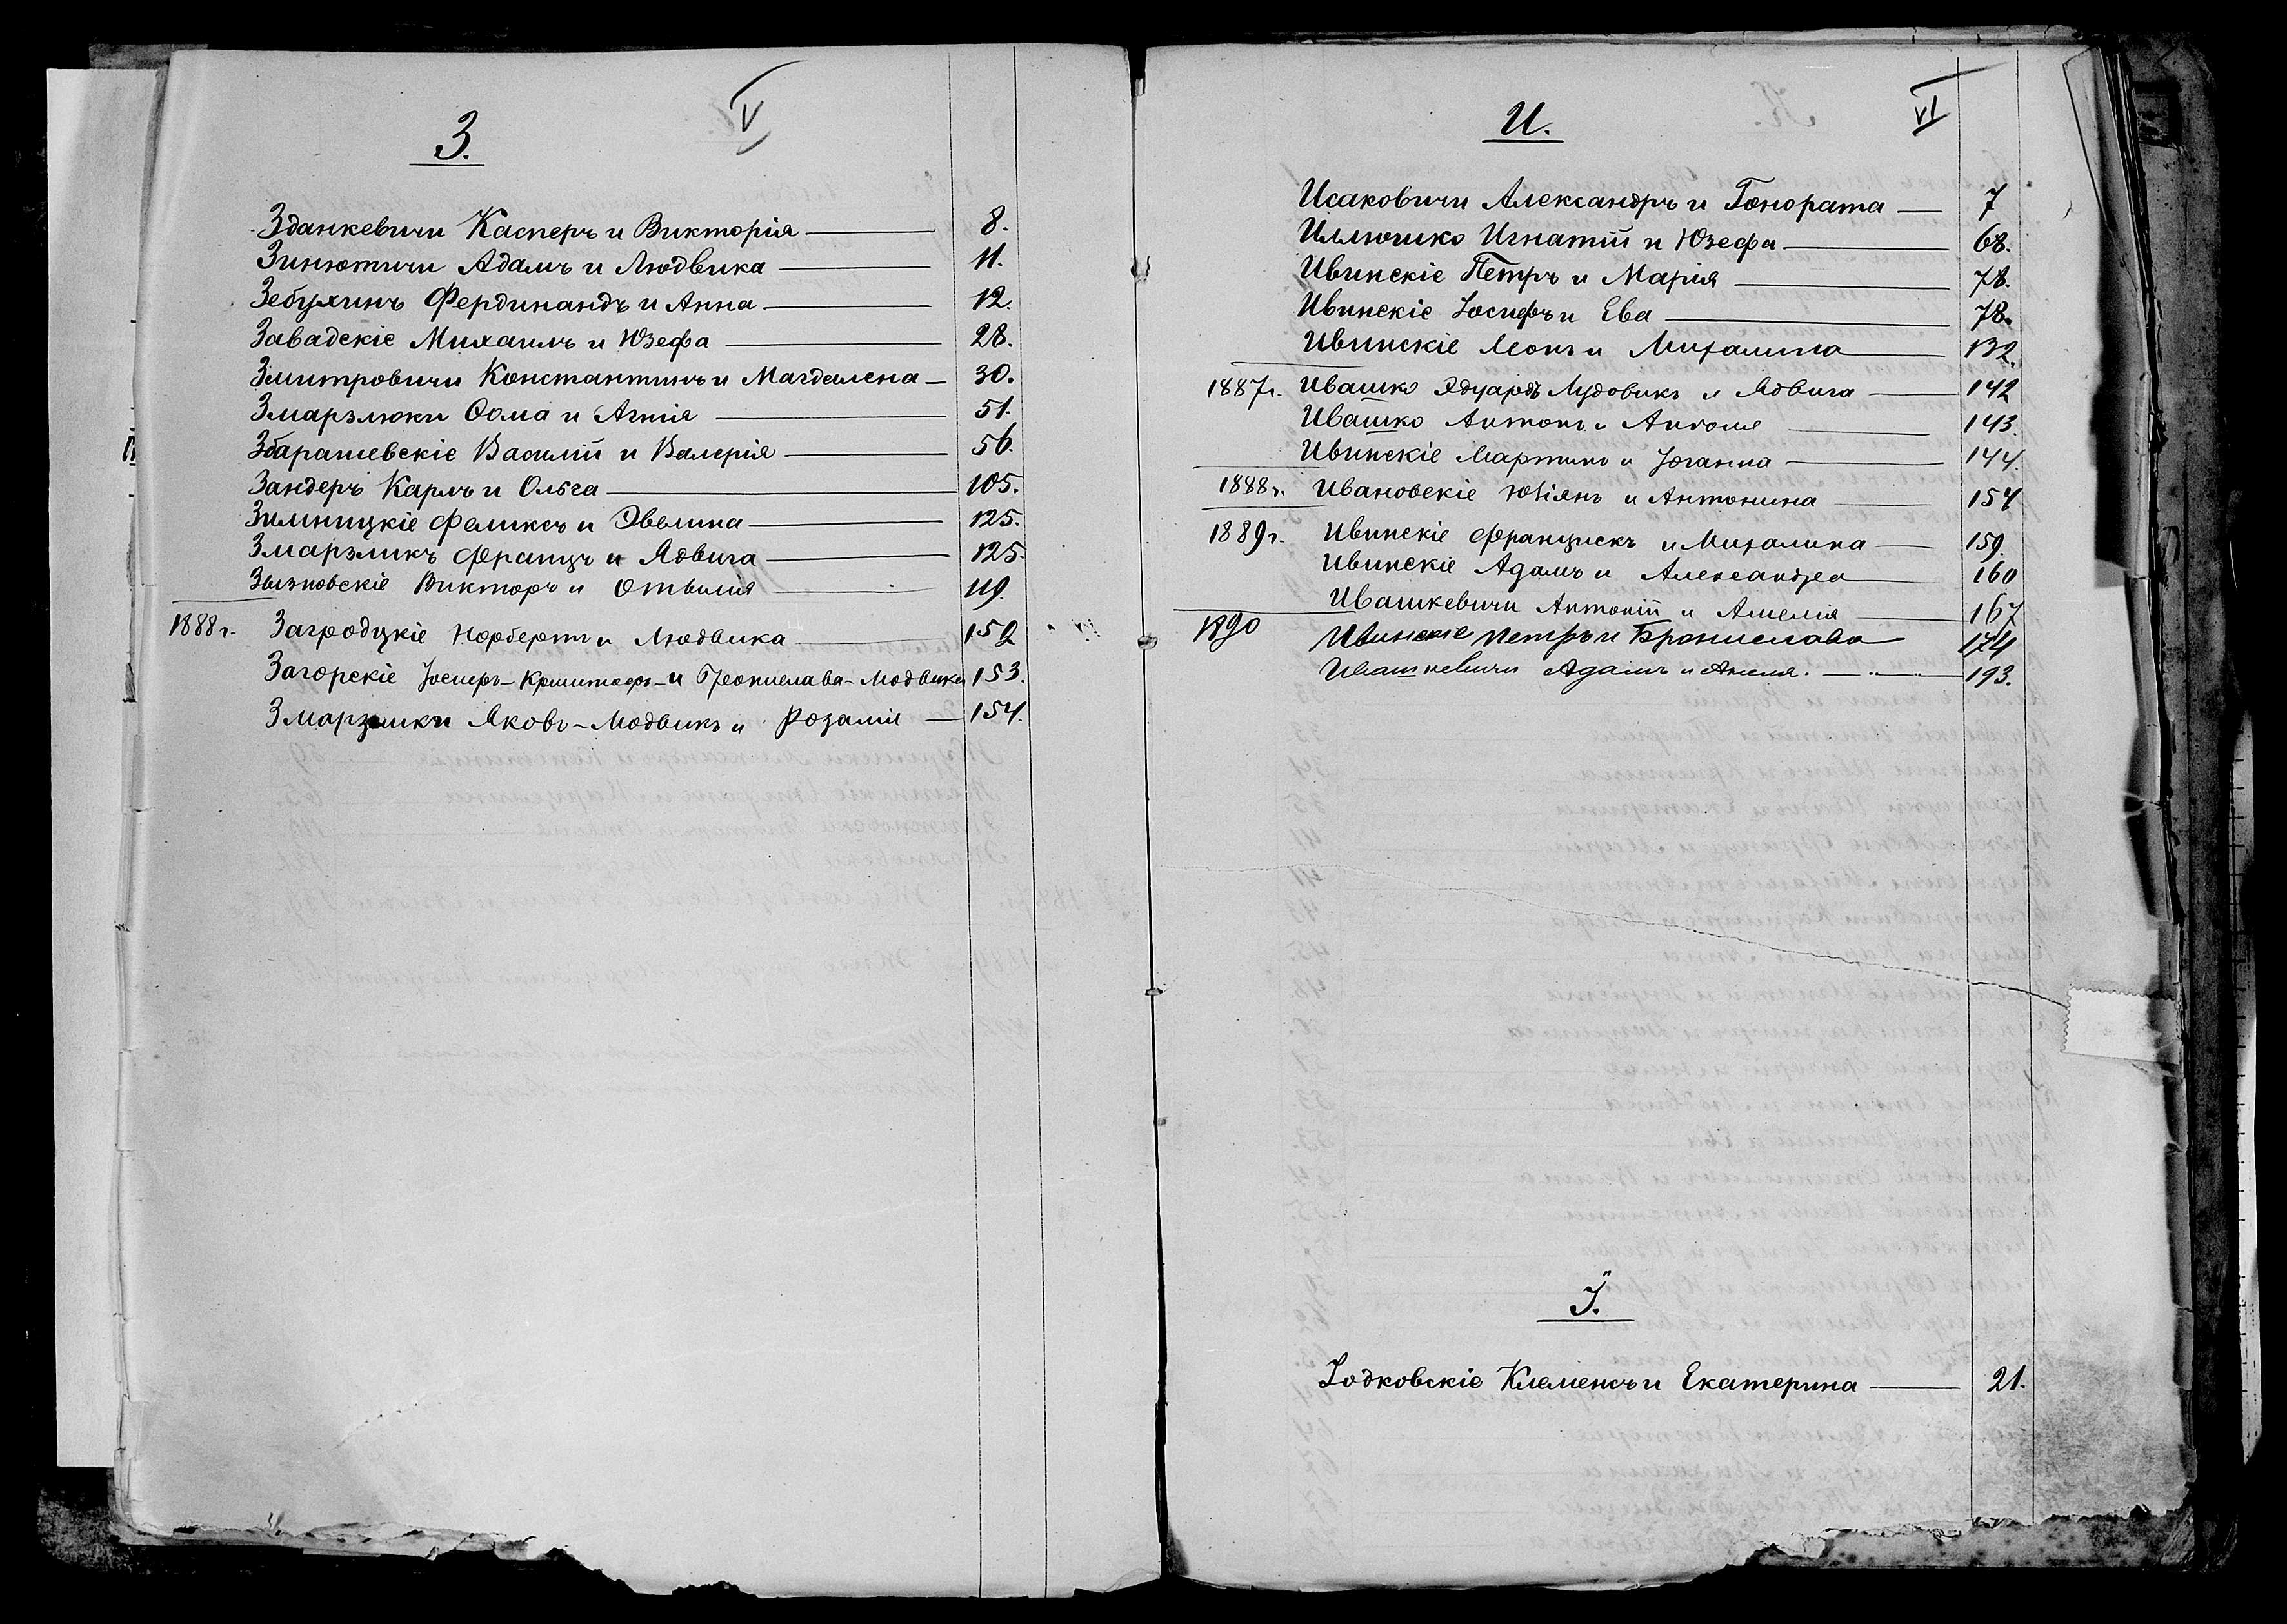 V
З.
Зданкевичи Касперъ и Викторія 8.
Зинютичи Адамъ и Людвика 11.
Зебухинъ Фердинандъ и Анна 12.
Завадскіе Михаилъ и Юзефа 28.
Змитровичи Константинъ и Магдалена 30.
Змарзлюки Ѳома и Агнія 51.
Збарашевскіе Василій и Валерія 56.
Зандеръ Карлъ и Ольга 105.
Зимницкіе Феликсъ и Эвелина 125.
Змарзликъ Францъ и Ядвига 125.
Викторъ и Отылія 119.
1888 г. Загродцкіе Норбертъ и Людвика 152
Загорскіе Іосифъ- и Брониславa-Людвика 153.
Змарзлики Яковъ-Людвикъ и Розалія 154.
VI
И.
Исаковичи Александръ и Гонората 7
Иллюшко Игнатій и Юзефа 68.
Ивинскіе Петръ и Марія 78.
Ивинскіе Іосифъ и Ева 78.
Ивинскіе Леонъ и Михалина 132.
1887 г. Ивашко Эдуардъ Лудовикъ и Ядвига 142
Ивашко Антонъ и 143.
Ивинскіе Мартинъ и Іоганна 144.
1888 г. Ивановскіе и Антонина 154
1889 г. Ивинскіе Францискъ и Михалина 159.
Ивинскіе Адамъ и Александра 160
Ивашкевичи Антоній и Амелія 167
1890 Ивинскіе Петръ и Брониславa 174
Ивашкевичи Адамъ и 193.
І.
Іодковскіе Клеменсъ и Екатерина 21.